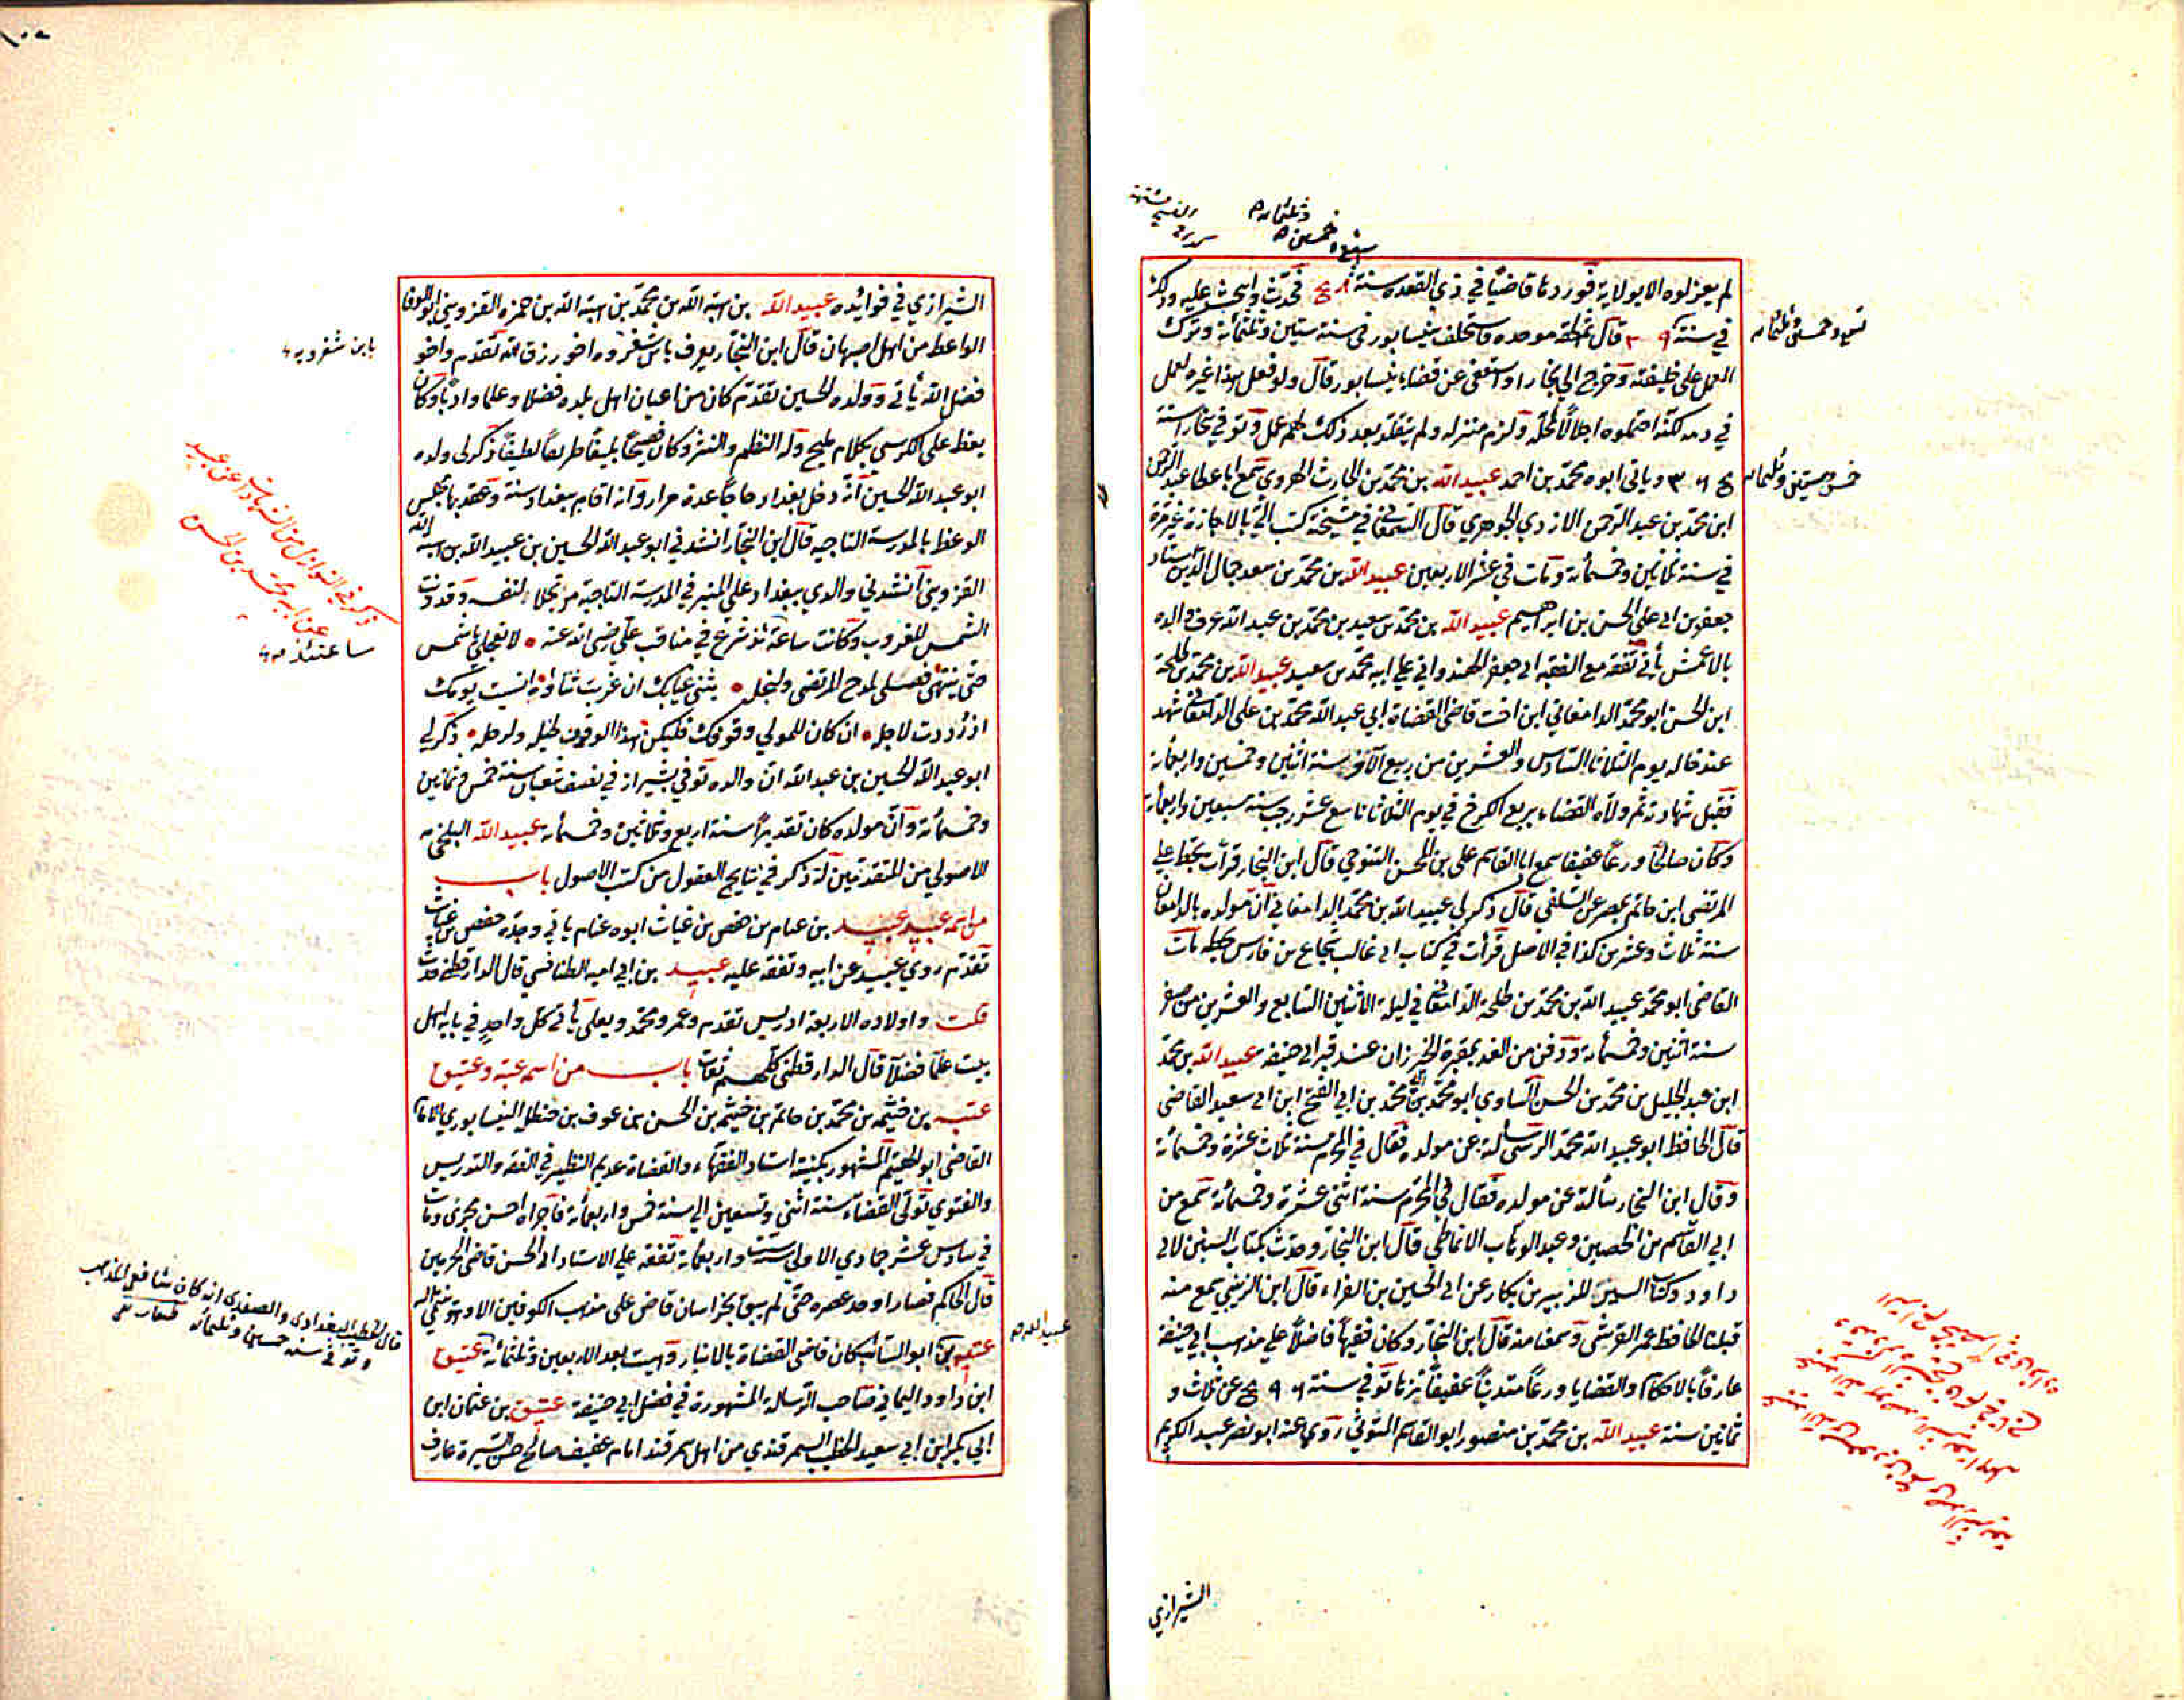 لم يعزلوه الا بولاية فورد بها قاضيا في ذي القعده سنة فحدث وانتخب عليه وذلك
في سنة ٣٥٩ قال ثم لحقه موجده فاستخلف بنيسابور في سنة ستين وثلثمائة وترك
العمل على خليفته وخرج الى بخارا واستعفى عن قضاء نيسابور قال ولو فعل هذا غيره لعمل
في دمه لكنه احتملوه اجلالا لمحله ولزم منزله ولم يتقلد بعد ذلك لهم عمل وتوفي ببخارا سنة
وياتي ابوه محمد بن احمد عبيد الله بن محمد بن الحارث الهروي سمع ابا عطا عبد الرحمن
ابن محمد بن عبد الرحمن الازدي الجوهري قال السمعاني في مشيخته كتب الي بالاجازة غير مرة
في سنة ثلاثين وخمسمائة ومات في عشر الاربعين عبيد الله بن محمد بن سعد جمال الدين استاد
جعفر بن ابي علي الحسن بن ابراهيم عبيد الله بن محمد بن سعيد بن محمد بن عبد الله عرف والده
بالاعمش يأتي تفقه مع الفقيه ابي جعفر الهندواني علي ابيه محمد بن سعيد عبيد الله بن محمد بن طلحة
ابن الحسن ابو محمد الدامغاني ابن اخت قاضي القضاة ابي عبد الله محمد بن علي الدامغاني شهد
عند خاله يوم الثلاثا السادس والعشرين من ربيع الآخر سنة اثنين وخمسين واربعمائة
فقبل شهادته ثم ولاه القضاء بربع الكرخ في يوم الثلاثا تاسع عشر رجب سنة سبعين واربعمائة
وكان صالحا ورعا عفيفا سمع ابا القاسم علي بن المحسن التنوخي قال ابن النجار قرأت بخط علي
المرتضى ابن حاتم بمصر عن السلفي قال ذكر لي عبيد الله بن محمد الدامغاني ان مولده بالدامغان
سنة ثلاث وعشرين كذا في الاصل قرأت في كتاب ابي غالب شجاع بن فارس بخطه مات
القاضي ابو محمد عبيد الله بن محمد بن طلحة الدامغاني في ليلة الاثنين السابع والعشرين من صفر
سنة اثنين وخمسمائة ودفن من الغد بمقبرة الخيزران عند قبر ابي حنيفة عبيد الله بن محمد
ابن عبد الجليل بن محمد بن الحسن الساوي ابو محمد بن محمد بن ابي الفتح ابن ابي سعيد القاضي
قال الحافظ ابو عبيد الله محمد الدبيثي سألته عن مولده فقال في المحرم سنة ثلاث عشرة وخمسمائة
وقال ابن النجار سألته عن مولده فقال في المحرم سنة اثنتي عشرة وخمسمائة سمع من
ابي القاسم بن الحصين وعبد الوهاب الانماطي قال ابن النجار وحدث بكتاب السنن لابي
داود وكتاب النسب للزبير بن بكار عن ابي الحسين بن الفراء قال ابن الزينبي سمع منه
قبلنا الحافظ عمر القرشي وسمعنا منه قال ابن النجار وكان فقيها فاضلا علي مذهب ابي حنيفة
عارفا بالاحكام والقضايا ورعا متدينا عفيفا نزها توفي في سنة عن ثلاث و
ثمانين سنة عبيد الله بن محمد بن منصور ابو القاسم المتوثي روي عنه ابو نصر عبد الكريم
الشيرازي
الشيرازي في فوائده عبيد الله بن هبة الله بن محمد بن هبة الله بن حمزه القزويني ابو الوفا
الواعظ من اهل اصبهان قال ابن النجار يعرف باب شفروه اخو رزق الله تقدم واخو
فضل الله يأتي وولده الحسين تقدم كان من اعيان اهل بلده فضلا وعلما وادبا وكان
يعظ على الكرسي بكلام مليح وله النظم والنثر وكان فصيحا بليغا ظريفا لطيفا ذكر لي ولده
ابو عبد الله الحسين انه دخل بغداد حاجا عدة مرار وانه اقام ببغداد سنة وعقد بها مجلس
الوعظ بالمدرسة التاجيه قال ابن النجار انشدني ابو عبد الله الحسين بن عبيد الله بن هبة الله
القزويني انشدني والدي ببغداد على المنبر في المدرسة التاجية مرتجلا لنفسه وقد دنت
الشمس للغروب وكانت ساعة شرع في مناقب علي رضي الله عنه لا تعجلي يا شمس
حتى ينتهي فصلي لمدح المرتضى ولنجله يثني عنانك ان غربت ثناؤه انسيت يومك
اذ رددت لاجله ان كان للمولى وقوفك فليكن هذا الوقوف لخيله ولرجله ذكر لي
ابو عبد الله الحسين بن عبد الله ان والده توفي بشيراز في نصف شعبان سنة خمس وثمانين
وخمسمائة وان مولده كان تقديرا سنة اربع وثلاثين وخمسمائة عبيد الله البلخي
الاصولي من المتقدمين له ذكر في نتايج العقول من كتب الاصول باب
من اسمه عبيد عبيد بن غنام بن حفص بن غياث ابوه غنام ياتي وجده حفص بن غياث
تقدم روي عبيد عن ابيه وتفقه عليه عبيد بن ابي اميه الطنافسي قال الدارقطني حدث
قلت واولاده الاربعة ادريس تقدم وعمر ومحمد ويعلى يأتي كل واحد في بابه اهل
بيت علما فضلا قال الدارقطني كلهم ثقات باب من اسمه عتبة وعتيق
عتبه بن خيثمه بن محمد بن حاتم بن خيثمه بن الحسن بن عوف بن حنظلة النيسابوري الامام
القاضي ابو الهيثم المشهور بكنيته استاد الفقهاء والقضاة عديم النظير في الفقه والتدريس
والفتوي تولى القضاء سنة اثني وتسعين الى سنة خمس واربعمائة فاجراه احسن مجرى ومات
في سادس عشر جمادي الاولى سنة ست واربعمائة تفقه علي الاستاد ابي الحسن قاضي الحرمين
قال الحاكم فصار اوحد عصره حتى لم يبق بخراسان قاض على مذهب الكوفيين الا وهو ينتمي اليه
عتبه بن ابو السائب كان قاضي القضاة بالانبار وهيت بعد الاربعين وثلثمائة عتيق
ابن داود اليماني صاحب الرسالة المشهورة في فضل ابي حنيفة عتيق بن عثمان ابن
ابي بكر ابن ابي سعيد الخطيب السمرقندي من اهل سمرقند امام عفيف صالح حسن السيرة عارف
تسع وخمسين وثلثمائه
خمس وستين وثلثمائه
عبيد الله
قال الخطيب البغدادي والصفدي انه كان شافعي المذهب
وتوفي سنة خمسين وثلثمائه